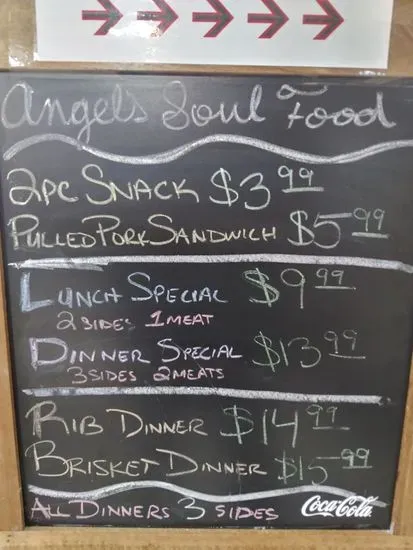 Angels Soul Food
2PC SNACK $3.99
PULLED PORK SANDWICH $5.99
LUNCH SPECIAL $9.99
2 SIDES 1 MEAT
DINNER SPECIAL $13.99
3 SIDES 2 MEATS
RIB DINNER $14.99
BRISKET DINNER $15.99
ALL DINNERS 3 SIDES Coca-Cola